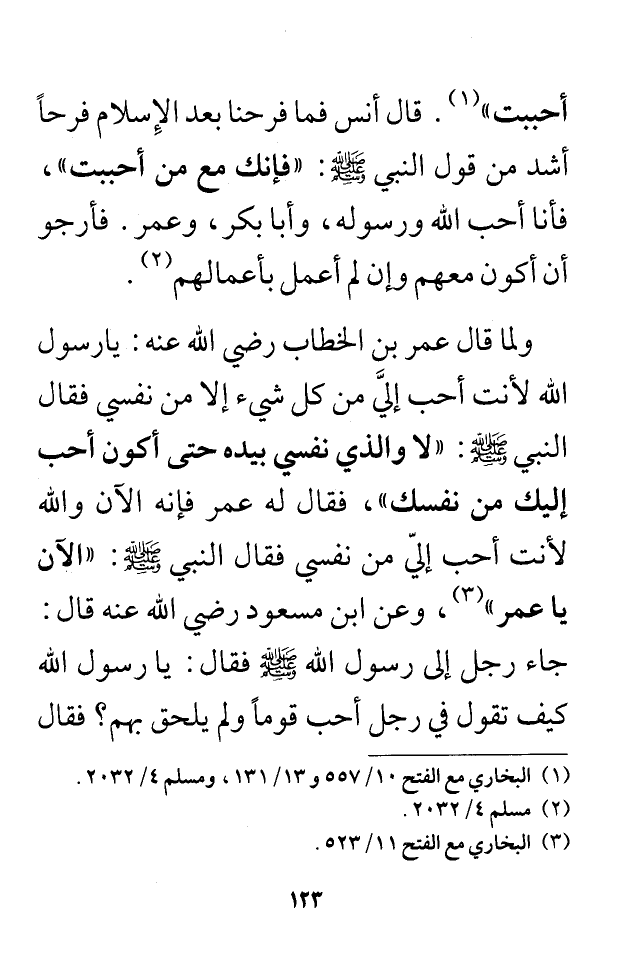 أحببت»(١) . قال أنس فما فرحنا بعد الإِسلام فرحاً
أشد من قول النبي ﷺ : «فإنك مع من أحببت» ،
فأنا أحب الله ورسوله ، وأبا بكر ، وعمر . فأرجو
أن أكون معهم وإن لم أعمل بأعمالهم(٢) .
ولما قال عمر بن الخطاب رضي الله عنه : يارسول
الله لأنت أحب إليَّ من كل شيء إلا من نفسي فقال
النبي ﷺ : «لا والذي نفسي بيده حتى أكون أحب
إليك من نفسك» ، فقال له عمر فإنه الآن والله
لأنت أحب إليّ من نفسي فقال النبي ﷺ : «الآن
يا عمر»(٣) ، وعن ابن مسعود رضي الله عنه قال :
جاء رجل إلى رسول الله ﷺ فقال : يا رسول الله
كيف تقول في رجل أحب قوماً ولم يلحق بهم؟ فقال
(١) البخاري مع الفتح ١٠/ ٥٥٧ و١٣/ ١٣١ ، ومسلم ٤/ ٢٠٣٢ .
(٢) مسلم ٤/ ٢٠٣٢ .
(٣) البخاري مع الفتح ١١/ ٥٢٣ .
١٢٣